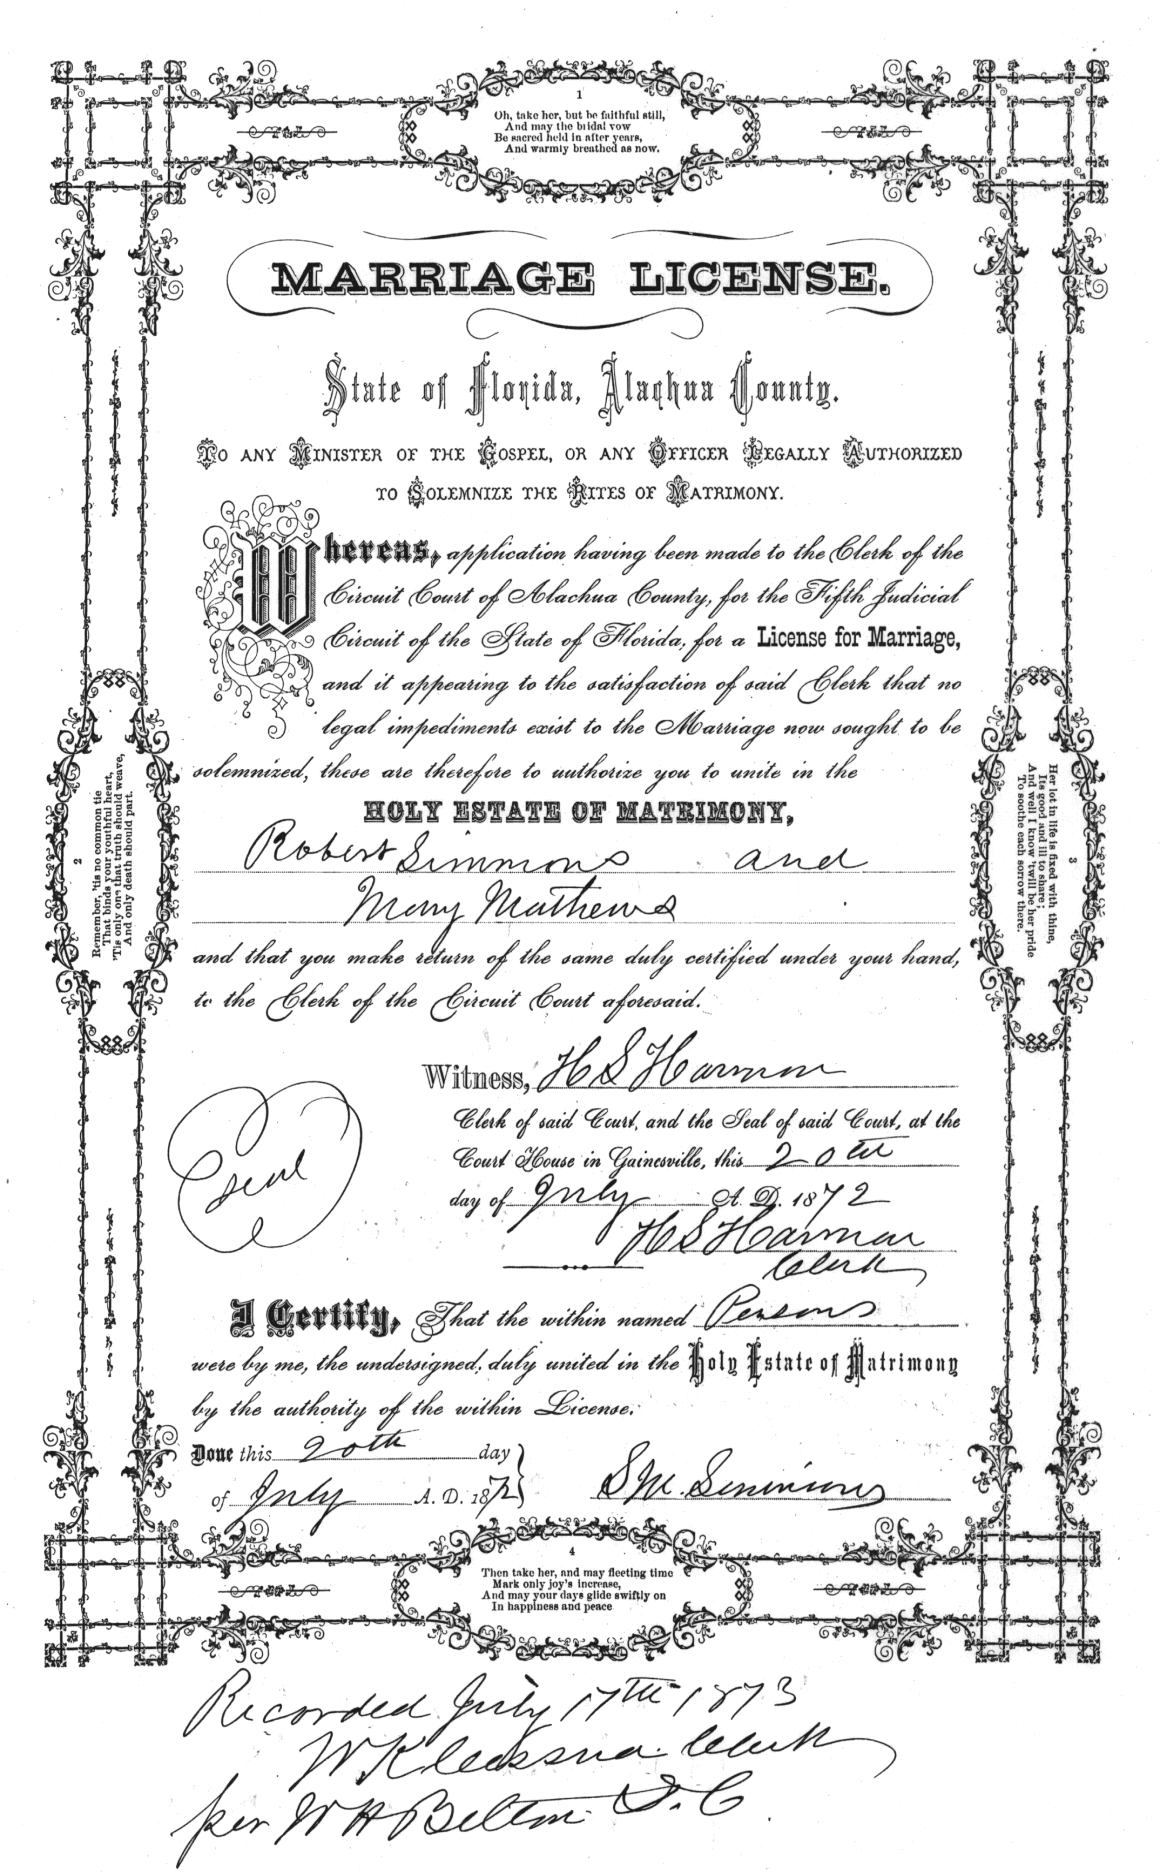 1
Oh, take her, but be faithful still,
And may the bridal vow
Be sacred held in after years,
And warmly breathed as now.
MARRIAGE LICENSE.
State of Florida, Alachua County.
TO ANY MINISTER OF THE GOSPEL, OR ANY OFFICER LEGALLY AUTHORIZED
TO SOLEMNIZE THE RITES OF MATRIMONY.
Whereas, application having been made to the Clerk of the
Circuit Court of Alachua County, for the Fifth Judicial
Circuit of the State of Florida, for a License for Marriage,
and it appearing to the satisfaction of said Clerk that no
legal impediments exist to the Marriage now sought to be
solemnized, these are therefore to authorize you to unite in the
HOLY ESTATE OF MATRIMONY,
Robert Simmons and
Mary Mathews
and that you make return of the same duly certified under your hand,
to the Clerk of the Circuit Court aforesaid.
2
Remember, 'tis no common tie
That binds your youthful heart,
'Tis only one that truth should weave,
And only death should part.
3
Her lot in life is fixed with thine,
Its good and ill to share;
And well I know 'twill be her pride
To soothe each sorrow there.
Witness, H S Harmon
Clerk of said Court, and the Seal of said Court, at the
Court House in Gainesville, this 20th
day of July A. D. 1872
Seal
H S Harmon
Clerk
I Certify, That the within named Persons
were by me, the undersigned, duly united in the Holy Estate of Matrimony
by the authority of the within License.
Done this 20th day
of July A. D. 1872
S M. Simmons
4
Then take her, and may fleeting time
Mark only joy's increase,
And may your days glide swiftly on
In happiness and peace
Recorded July 17th 1873
W K Cessna Clerk
per W H Belton D. C.